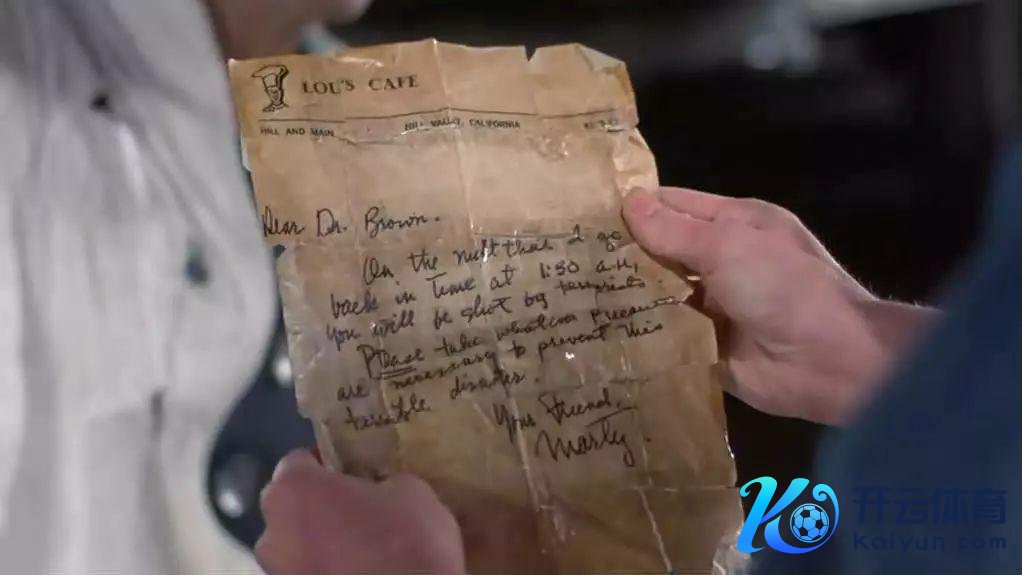 LOU'S CAFE
HILL AND MAIN HILL VALLEY, CALIFORNIA
Dear Dr. Brown.
On the night that I go
back in time at 1:30 A.M,
you will be shot by terrorists.
Please take whatever precautions
are necessary to prevent this
terrible disaster.
Your Friend.
Marty.
开云体育
Kaiyun.com